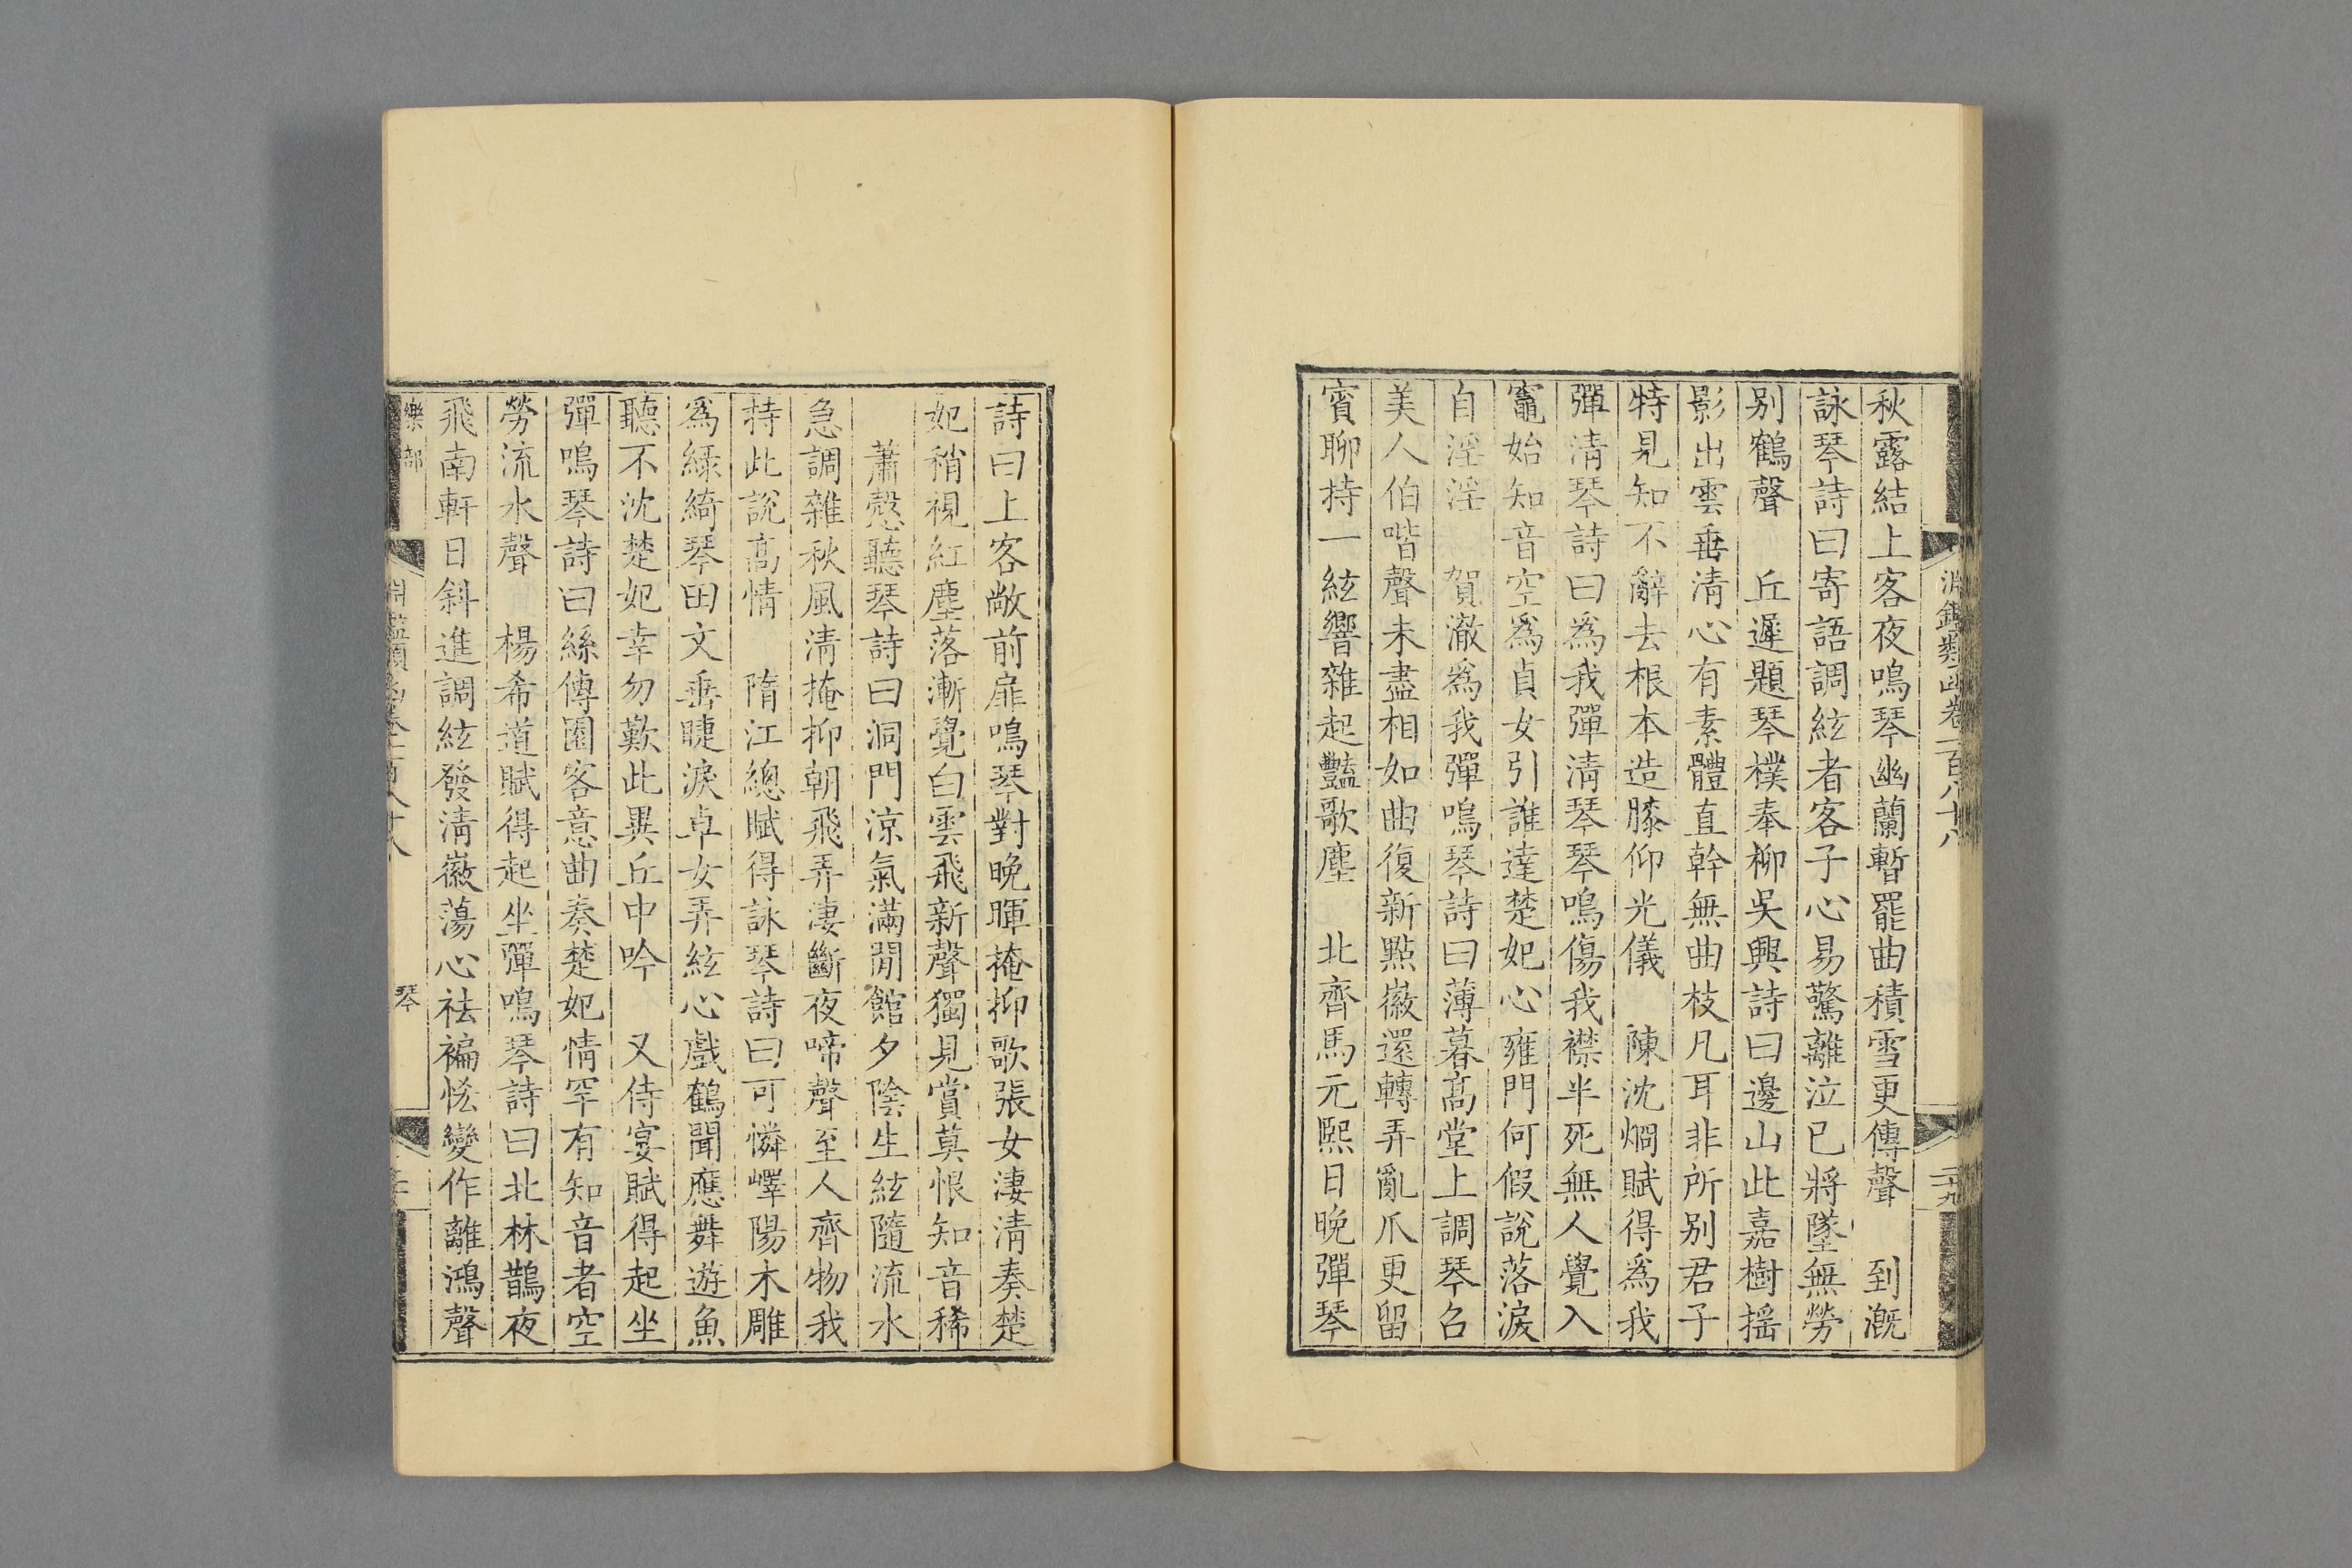 淵鑑類函卷一百八十八
二十九
秋露結上客夜鳴琴幽蘭暫罷曲積雪更傳聲　到溉
詠琴詩曰寄語調絃者客子心易驚離泣已將墜無勞
别鶴聲　丘遲題琴樸奉柳吳興詩曰邊山此嘉樹摇
影出雲垂清心有素體直幹無曲枝凡耳非所别君子
特見知不辭去根本造膝仰光儀　陳沈烱賦得爲我
彈清琴詩曰為我彈清琴琴鳴傷我襟半死無人覺入
竈始知音空爲貞女引誰達楚妃心雍門何假說落淚
自淫淫　賀澈爲我彈鳴琴詩曰薄暮高堂上調琴召
美人伯喈聲未盡相如曲復新點徽還轉弄亂爪更留
賓聊持一絃響雜起豔歌塵　北齊馬元熙日晚彈琴
詩曰上客敞前扉鳴琴對晚暉掩抑歌張女淒清奏楚
妃稍視紅塵落漸覺白雲飛新聲獨見賞莫恨知音稀
蕭慤聽琴詩曰洞門涼氣滿閒館夕陰生絃隨流水
急調雜秋風清掩抑朝飛弄淒斷夜啼聲至人齊物我
持此說高情　隋江總賦得詠琴詩曰可憐嶧陽木雕
爲綠綺琴田文垂睫淚卓女弄絃心戲鶴聞應舞遊魚
聽不沈楚妃幸勿歎此異丘中吟　又侍宴賦得起坐
彈鳴琴詩曰絲傳園客意曲奏楚妃情罕有知音者空
勞流水聲　楊希道賦得起坐彈鳴琴詩曰北林鵲夜
飛南軒日斜進調絃發清徽蕩心祛褊恡變作離鴻聲
樂部
琴